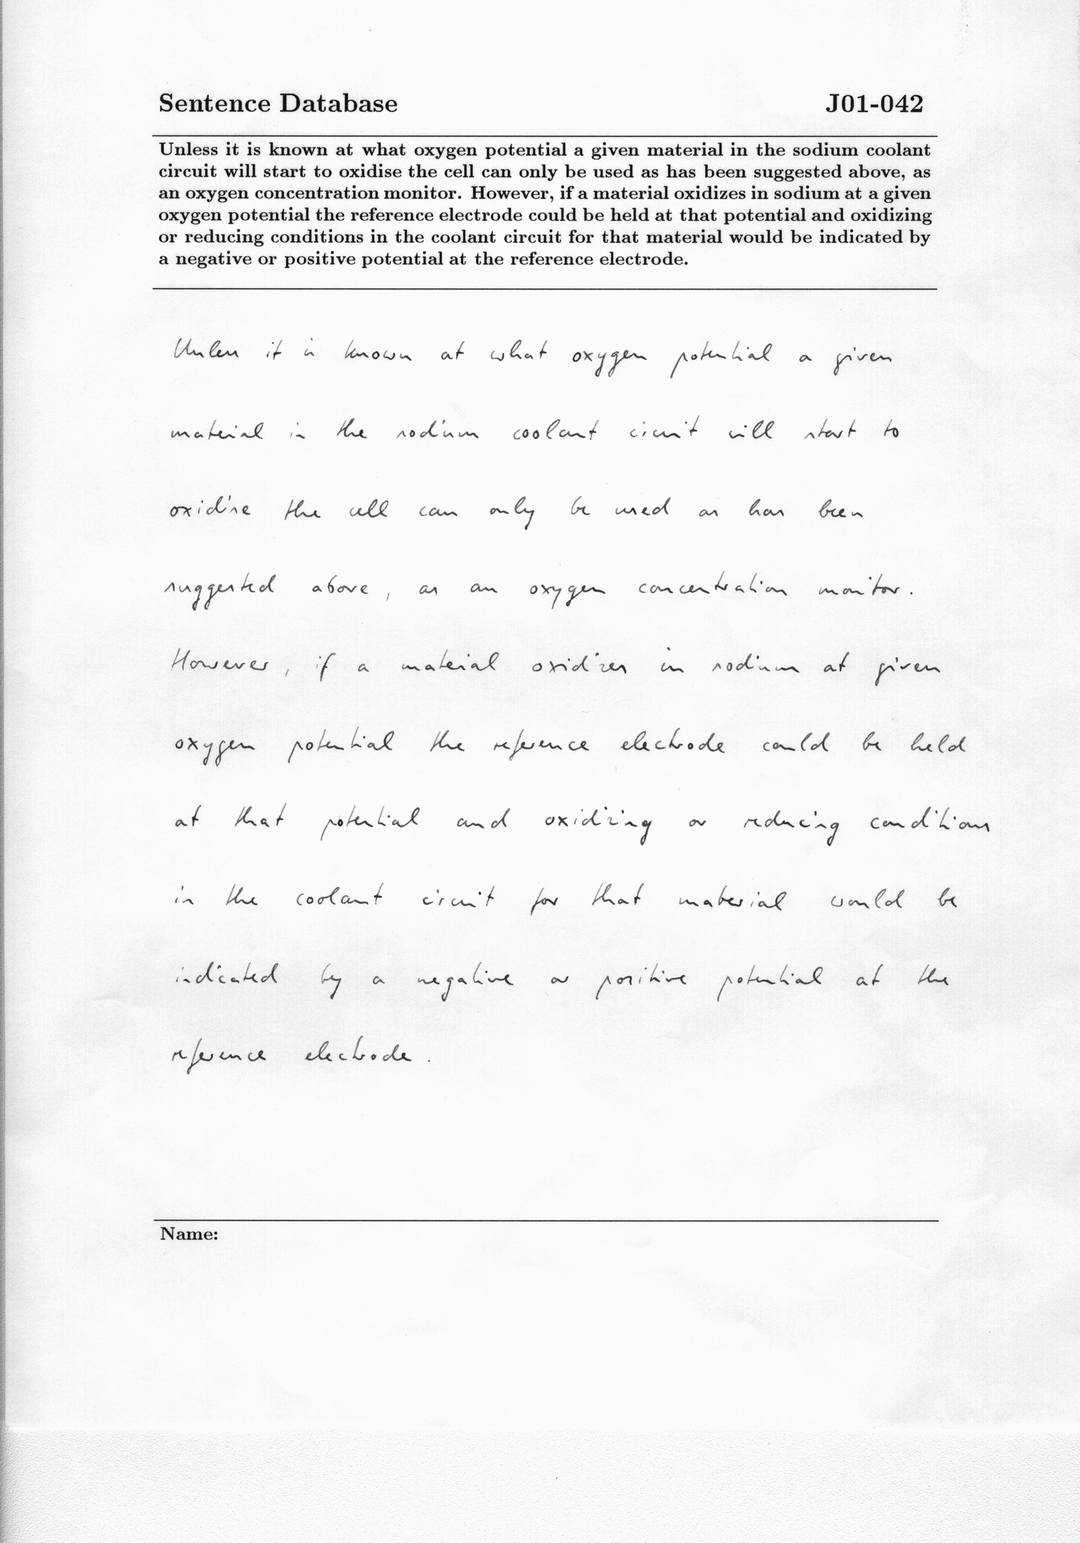 Sentence Database J01-042
Unless it is known at what oxygen potential a given material in the sodium coolant
circuit will start to oxidise the cell can only be used as has been suggested above, as
an oxygen concentration monitor. However, if a material oxidizes in sodium at a given
oxygen potential the reference electrode could be held at that potential and oxidizing
or reducing conditions in the coolant circuit for that material would be indicated by
a negative or positive potential at the reference electrode.
Unless it is known at what oxygen potential a given
material in the sodium coolant circuit will start to
oxidise the cell can only be used as has been
suggested above, as an oxygen concentration monitor.
However, if a material oxidizes in sodium at given
oxygen potential the reference electrode could be held
at that potential and oxidizing or reducing conditions
in the coolant circuit for that material would be
indicated by a negative or positive potential at the
reference electrode.
Name: